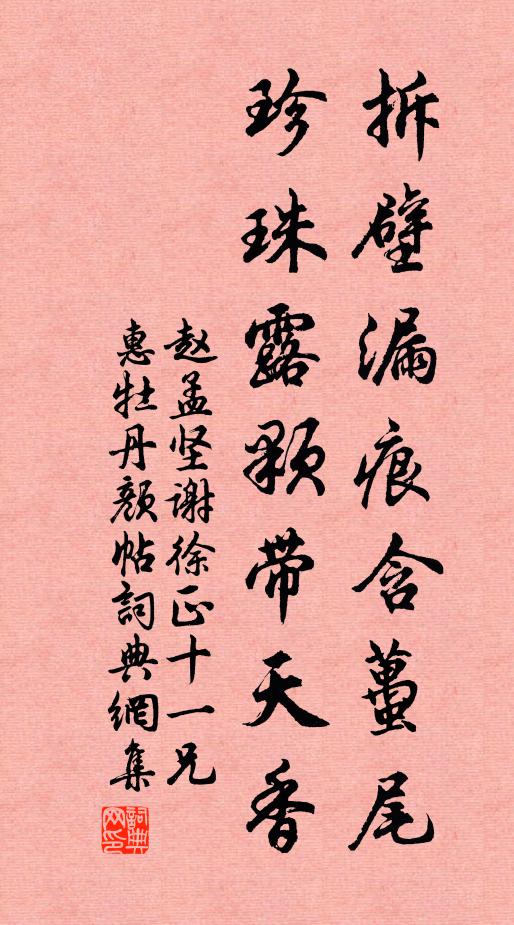 拆壁漏痕含薑尾
珍珠露顆帶天香
赵孟坚谢徐正十一兄
惠牡丹颜帖詞典網集
詞典网印